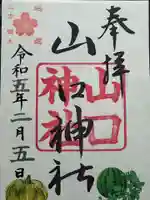 奉拝
山口神社
山口
神社
令和五年二月五日